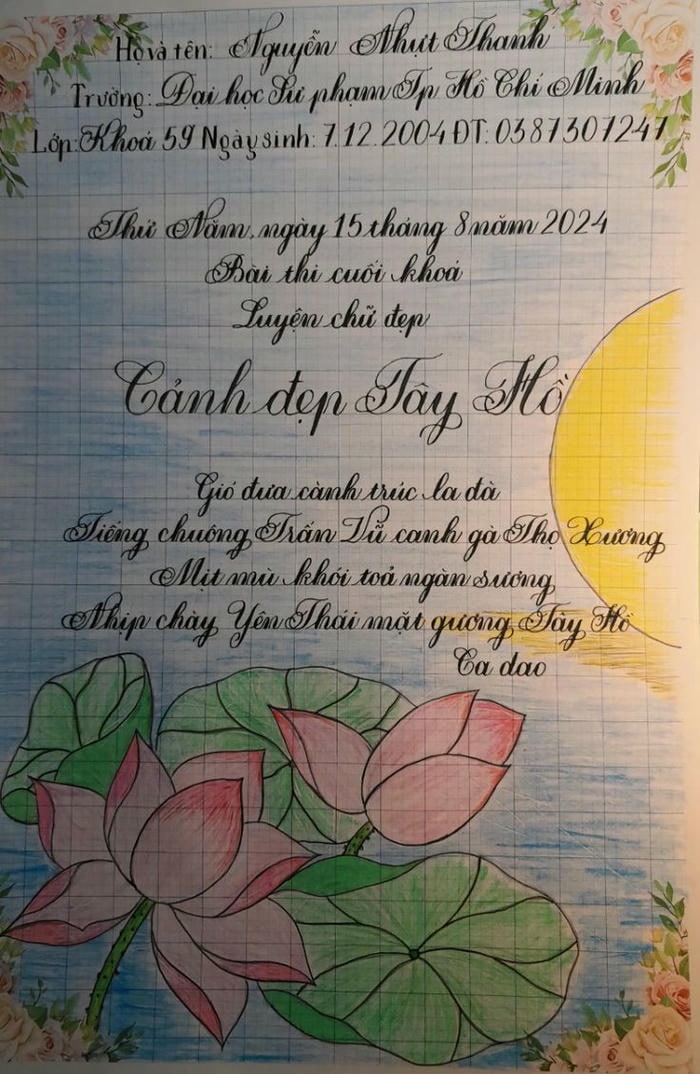 Họ và tên: Nguyễn Nhựt Thanh
Trường: Đại học Sư phạm Tp Hồ Chí Minh
Lớp: Khoá 59 Ngày sinh: 7.12.2004 ĐT: 0387307247
Thứ Năm, ngày 15 tháng 8 năm 2024
Bài thi cuối khoá
Luyện chữ đẹp
Cảnh đẹp Tây Hồ
Gió đưa cành trúc la đà
Tiếng chuông Trấn Vũ canh gà Thọ Xương
Mịt mù khói toả ngàn sương
Nhịp chày Yên Thái mặt gương Tây Hồ
Ca dao